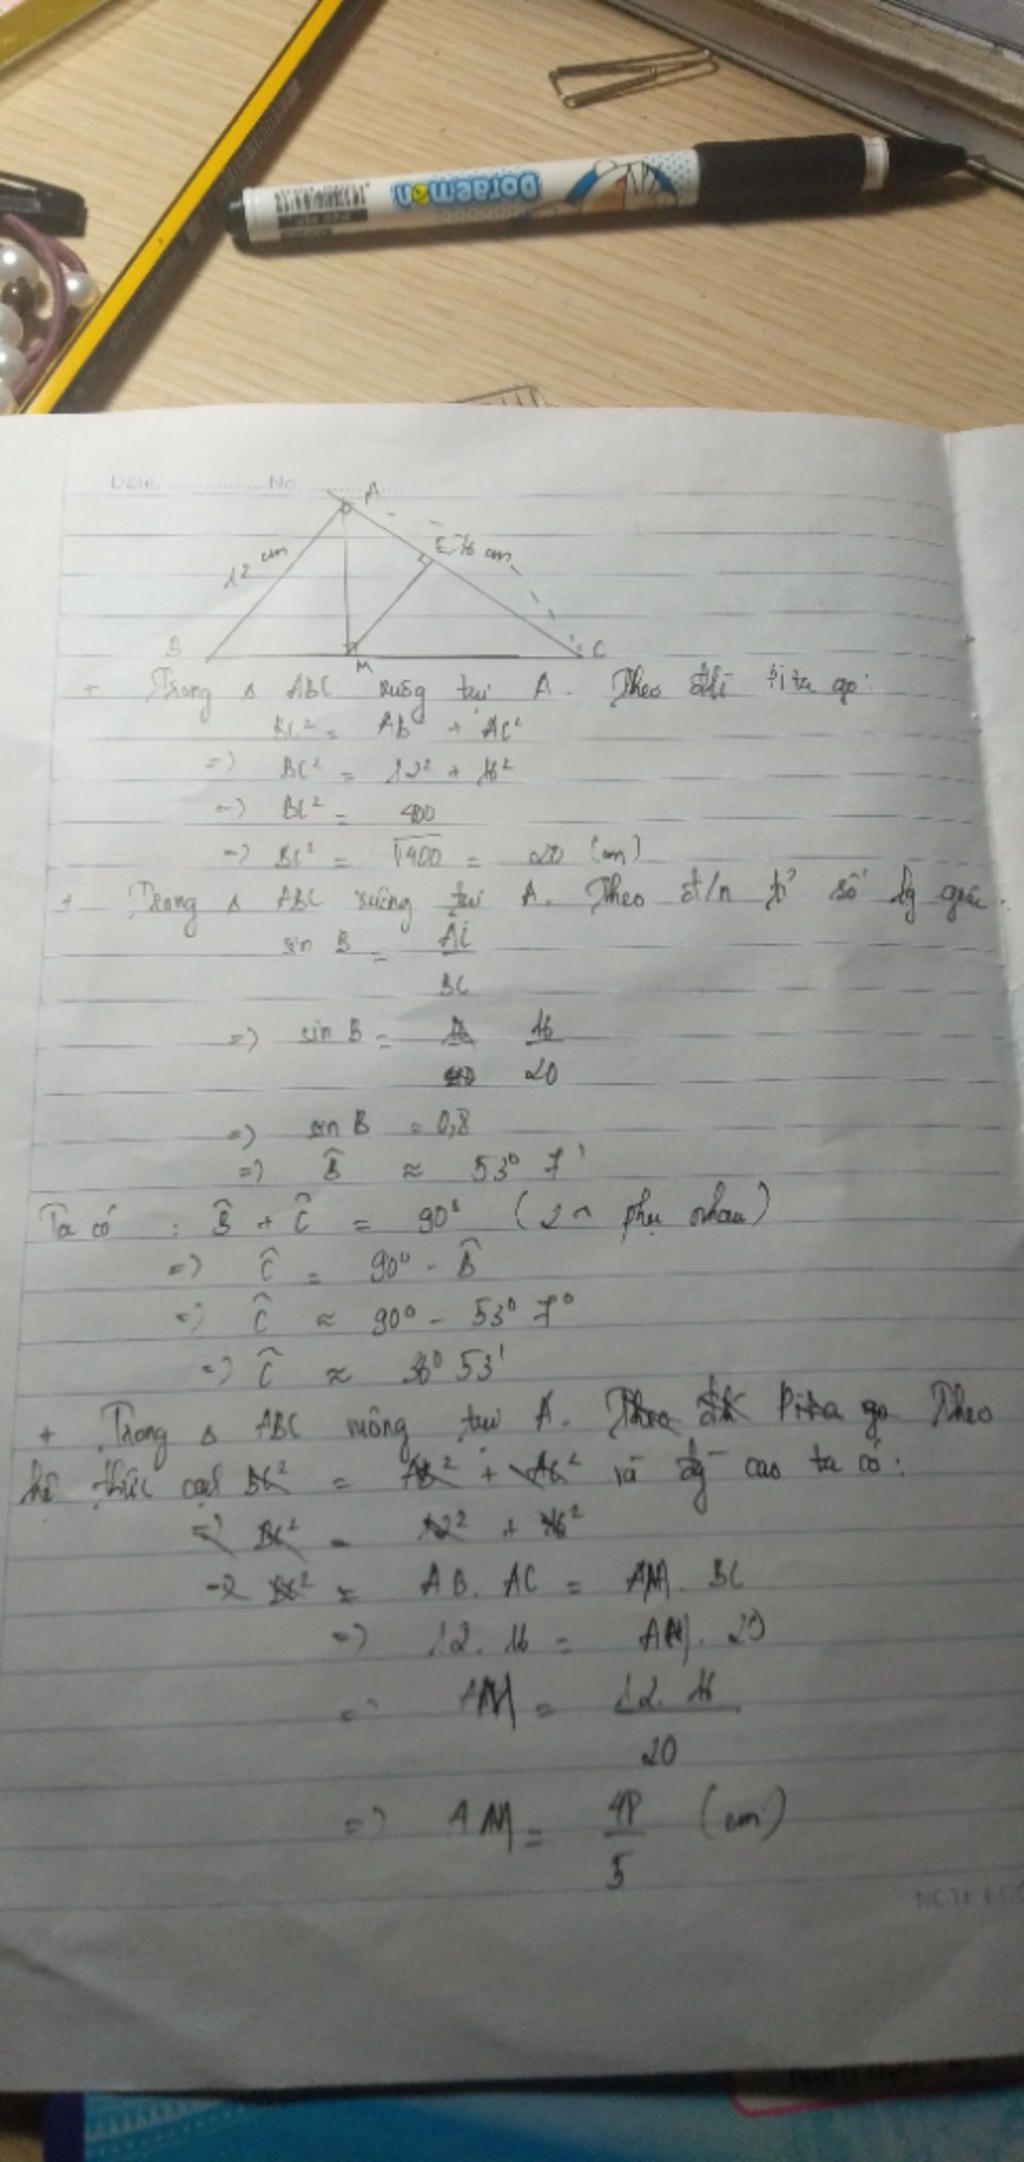 DORAEMON
Date. No.
A
12 cm
E 16 cm
B
M
C
+ Trong Δ ABC vuôg tại A. Theo đlí Pi ta go:
BC² = AB + AC²
=) BC² = 12² + 16²
=) BC² = 400
=) BC² = √400 = 20 (cm)
+ Trong Δ ABC vuông tại A. Theo đ/n tỉ số lg giác.
sin B = AC / BC
=) sin B = 16 / 20
=) sin B = 0,8
=) B̂ ≈ 53° 7'
Ta có : B̂ + Ĉ = 90° (2 ^ phụ nhau)
=) Ĉ = 90° - B̂
=) Ĉ ≈ 90° - 53° 7°
=) Ĉ ≈ 36° 53'
+ Trong Δ ABC vuông tại A. Theo đlí Pita go Theo
hệ thức cạnh BC² = AB² + AC² và đg cao ta có:
=) BC² = 12² + 16²
BC² = AB. AC = AM. BC
=) 12. 16 = AM. 20
=) AM = 12. 16 / 20
=) AM = 48 / 5 (cm)